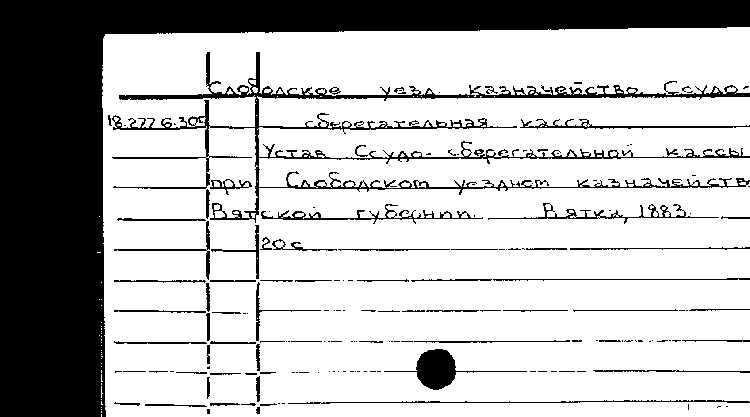 Слободское уезд. казначейство. Ссудо-
18.277.6.305 сберегательная касса
Устав Ссудо-сберегательной кассы
при Слободском уездном казначейств
Вятской губернии. Вятка, 1883.
20 с